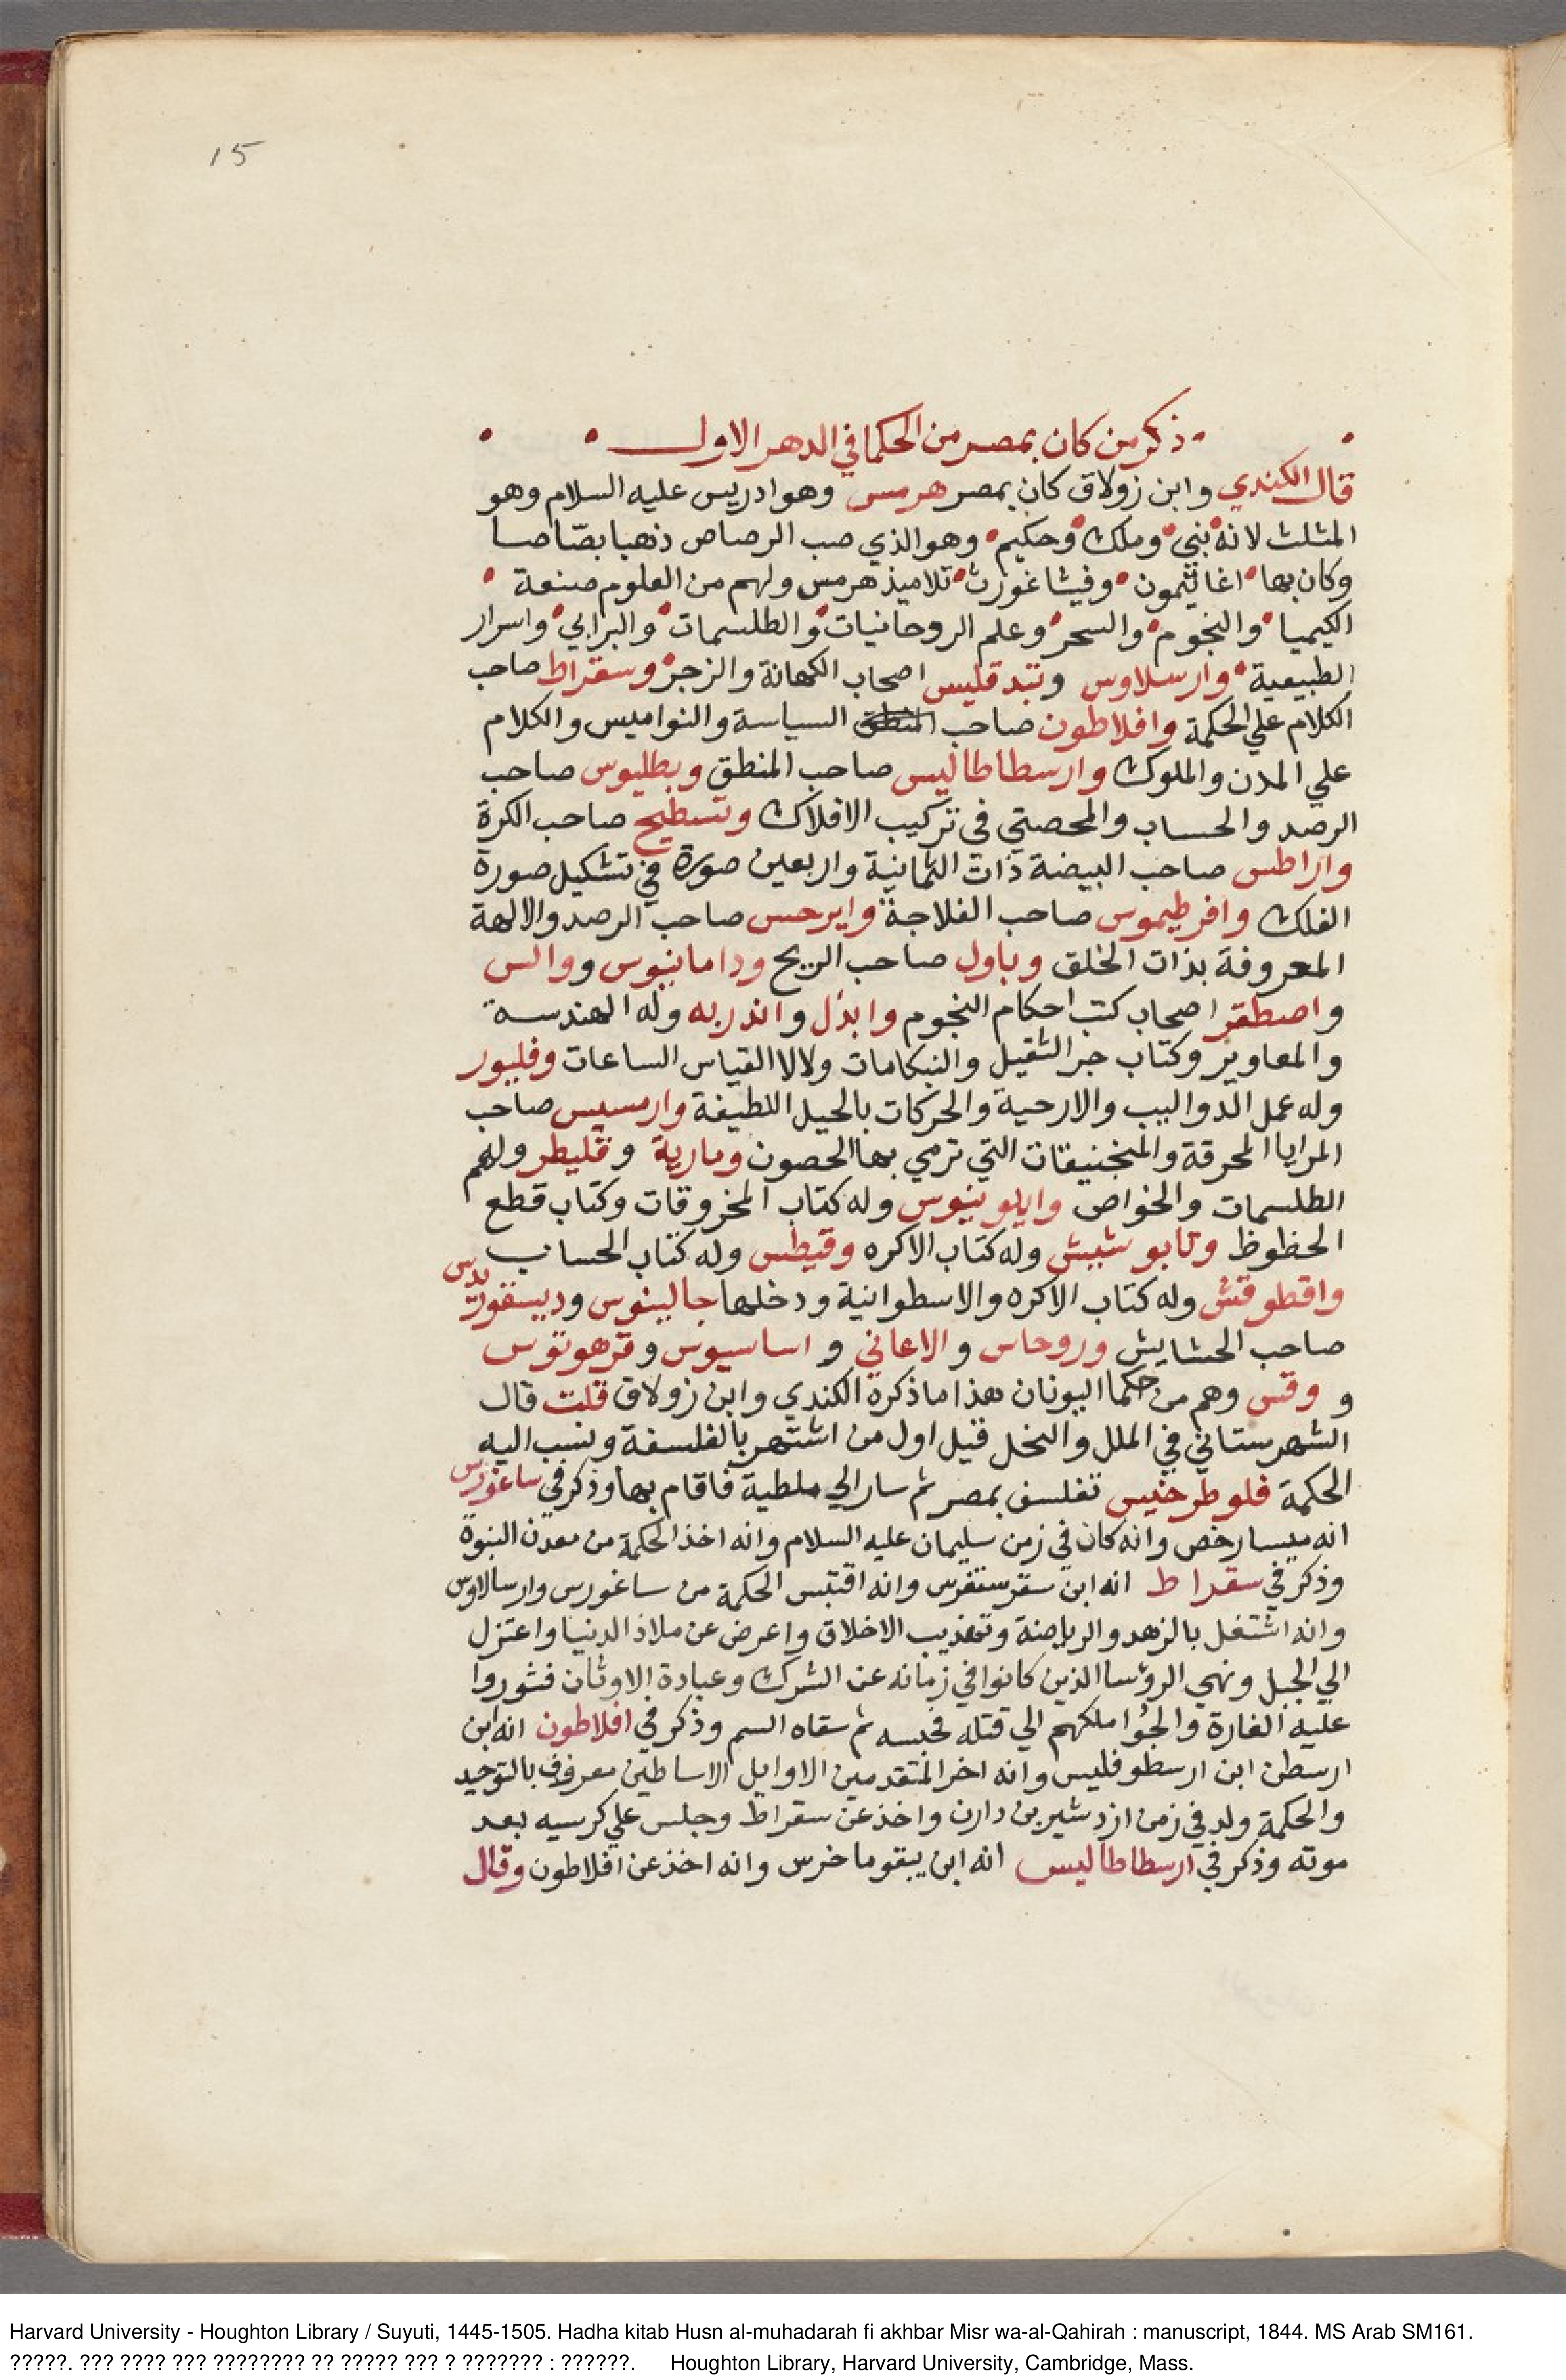 15
ذكر من كان بمصر من الحكما في الدهر الاول
قال الكندي وابن زولاق كان بمصر هرمس وهو ادريس عليه السلام وهو
المثلث لانه نبي وملك وحكيم وهو الذي صب الرصاص ذهبا بصاصا
وكان بها اغاثيمون وفيثاغورث تلاميذ هرمس ولهم من العلوم صنعة
الكيميا والنجوم والسحر وعلم الروحانيات والطلسمات والبرابي واسرار
الطبيعية وارسلاوس وتبدقليس اصحاب الكهانة والزجر وسقراط صاحب
الكلام علي الحكمة وافلاطون صاحب المنطق السياسة والنواميس والكلام
علي المدن والملوك وارسطاطاليس صاحب المنطق وبطليوس صاحب
الرصد والحساب والمحصتي في تركيب الافلاك وتسطيح صاحب الكرة
واراطس صاحب البيضة ذات الثمانية واربعين صورة في تشكيل صورة
الفلك وافرطيموس صاحب الفلاجة وايرحس صاحب الرصد والالهة
المعروفة بذات الخلق وباول صاحب الزيح ودامانيوس ووالس
واصطقر اصحاب كتب احكام النجوم وابذل واندربه وله الهندسة
والمعاوير وكتاب جر الثقيل والنبكامات ولالا القياس الساعات وفليور
وله عمل الدواليب والارحية والحركات بالحيل اللطيفة وارمسيس صاحب
المرايا المحرقة والمنجنيقات التي ترمي بها الحصون ومارية وقليطر ولهم
الطلسمات والخواص وابلونيوس وله كتاب المخروقات وكتاب قطع
الحظوظ وتابوشيش وله كتاب الاكره وقيطس وله كتاب الحساب
واقطوقش وله كتاب الاكره والاسطوانية ودخلها جالينوس وديسقوريدس
صاحب الحشايش وروحاس والاعاني و اساسيوس وقرهوتوس
و وقس وهم من حكما اليونان هذا ما ذكرة الكندي وابن زولاق قلت قال
الشهرستاني في الملل والنخل قيل اول من اشتهر بالفلسفة ونسب اليه
الحكمة فلوطرخيس تفلسف بمصر ثم سار الي ملطية فاقام بها وذكر في ساغورس
انه ميسارخص وانه كان في زمن سليمان عليه السلام وانه اخذ الحكمة من معدن النبوة
وذكر في سقراط انه ابن سقرستقرس وانه اقتبس الحكمة من ساغورس وارسالاوس
وانه اشتغل بالزهد والرياضة وتهذيب الاخلاق واعرض عن ملاذ الدنيا واعتزل
الي الجبل ونهي الرؤسا الذين كانوا في زمانه عن الشرك وعبادة الاوثان فثوروا
عليه الغارة والجؤا ملكهم الي قتله فحبسه ثم سقاه السم وذكر في افلاطون انه ابن
ارسطن ابن ارسطوفليس وانه اخر المتقدمين الاوايل الاساطين معروف بالتوحيد
والحكمة ولد في زمن ازدشير بن دارن واخذ عن سقراط وجلس علي كرسيه بعد
موته وذكر في ارسطاطاليس انه ابن يبقوماخرس وانه اخذ عن افلاطون وقال
Harvard University - Houghton Library / Suyuti, 1445-1505. Hadha kitab Husn al-muhadarah fi akhbar Misr wa-al-Qahirah : manuscript, 1844. MS Arab SM161.
?????. ??? ???? ??? ???????? ?? ????? ??? ? ??????? : ??????. Houghton Library, Harvard University, Cambridge, Mass.